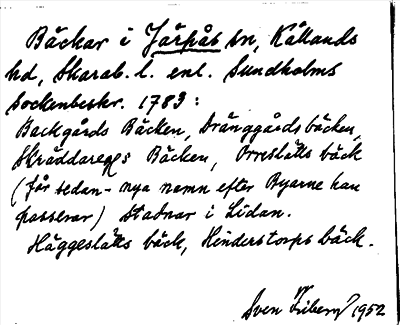 Bäckar i Järpås sn, Kållands
hd, Skarab. l. enl. Sundholms
Sockenbeskr. 1783:
Backgårds Bäcken, Dränggårds bäcken,
Skräddare Bäcken, Orreslätts bäck
(får sedan nya namn efter Byarne han
passerar) stadnar i Lidan.
Häggeslätts bäck, Hinderstorps bäck.
Sven Friberg 1952